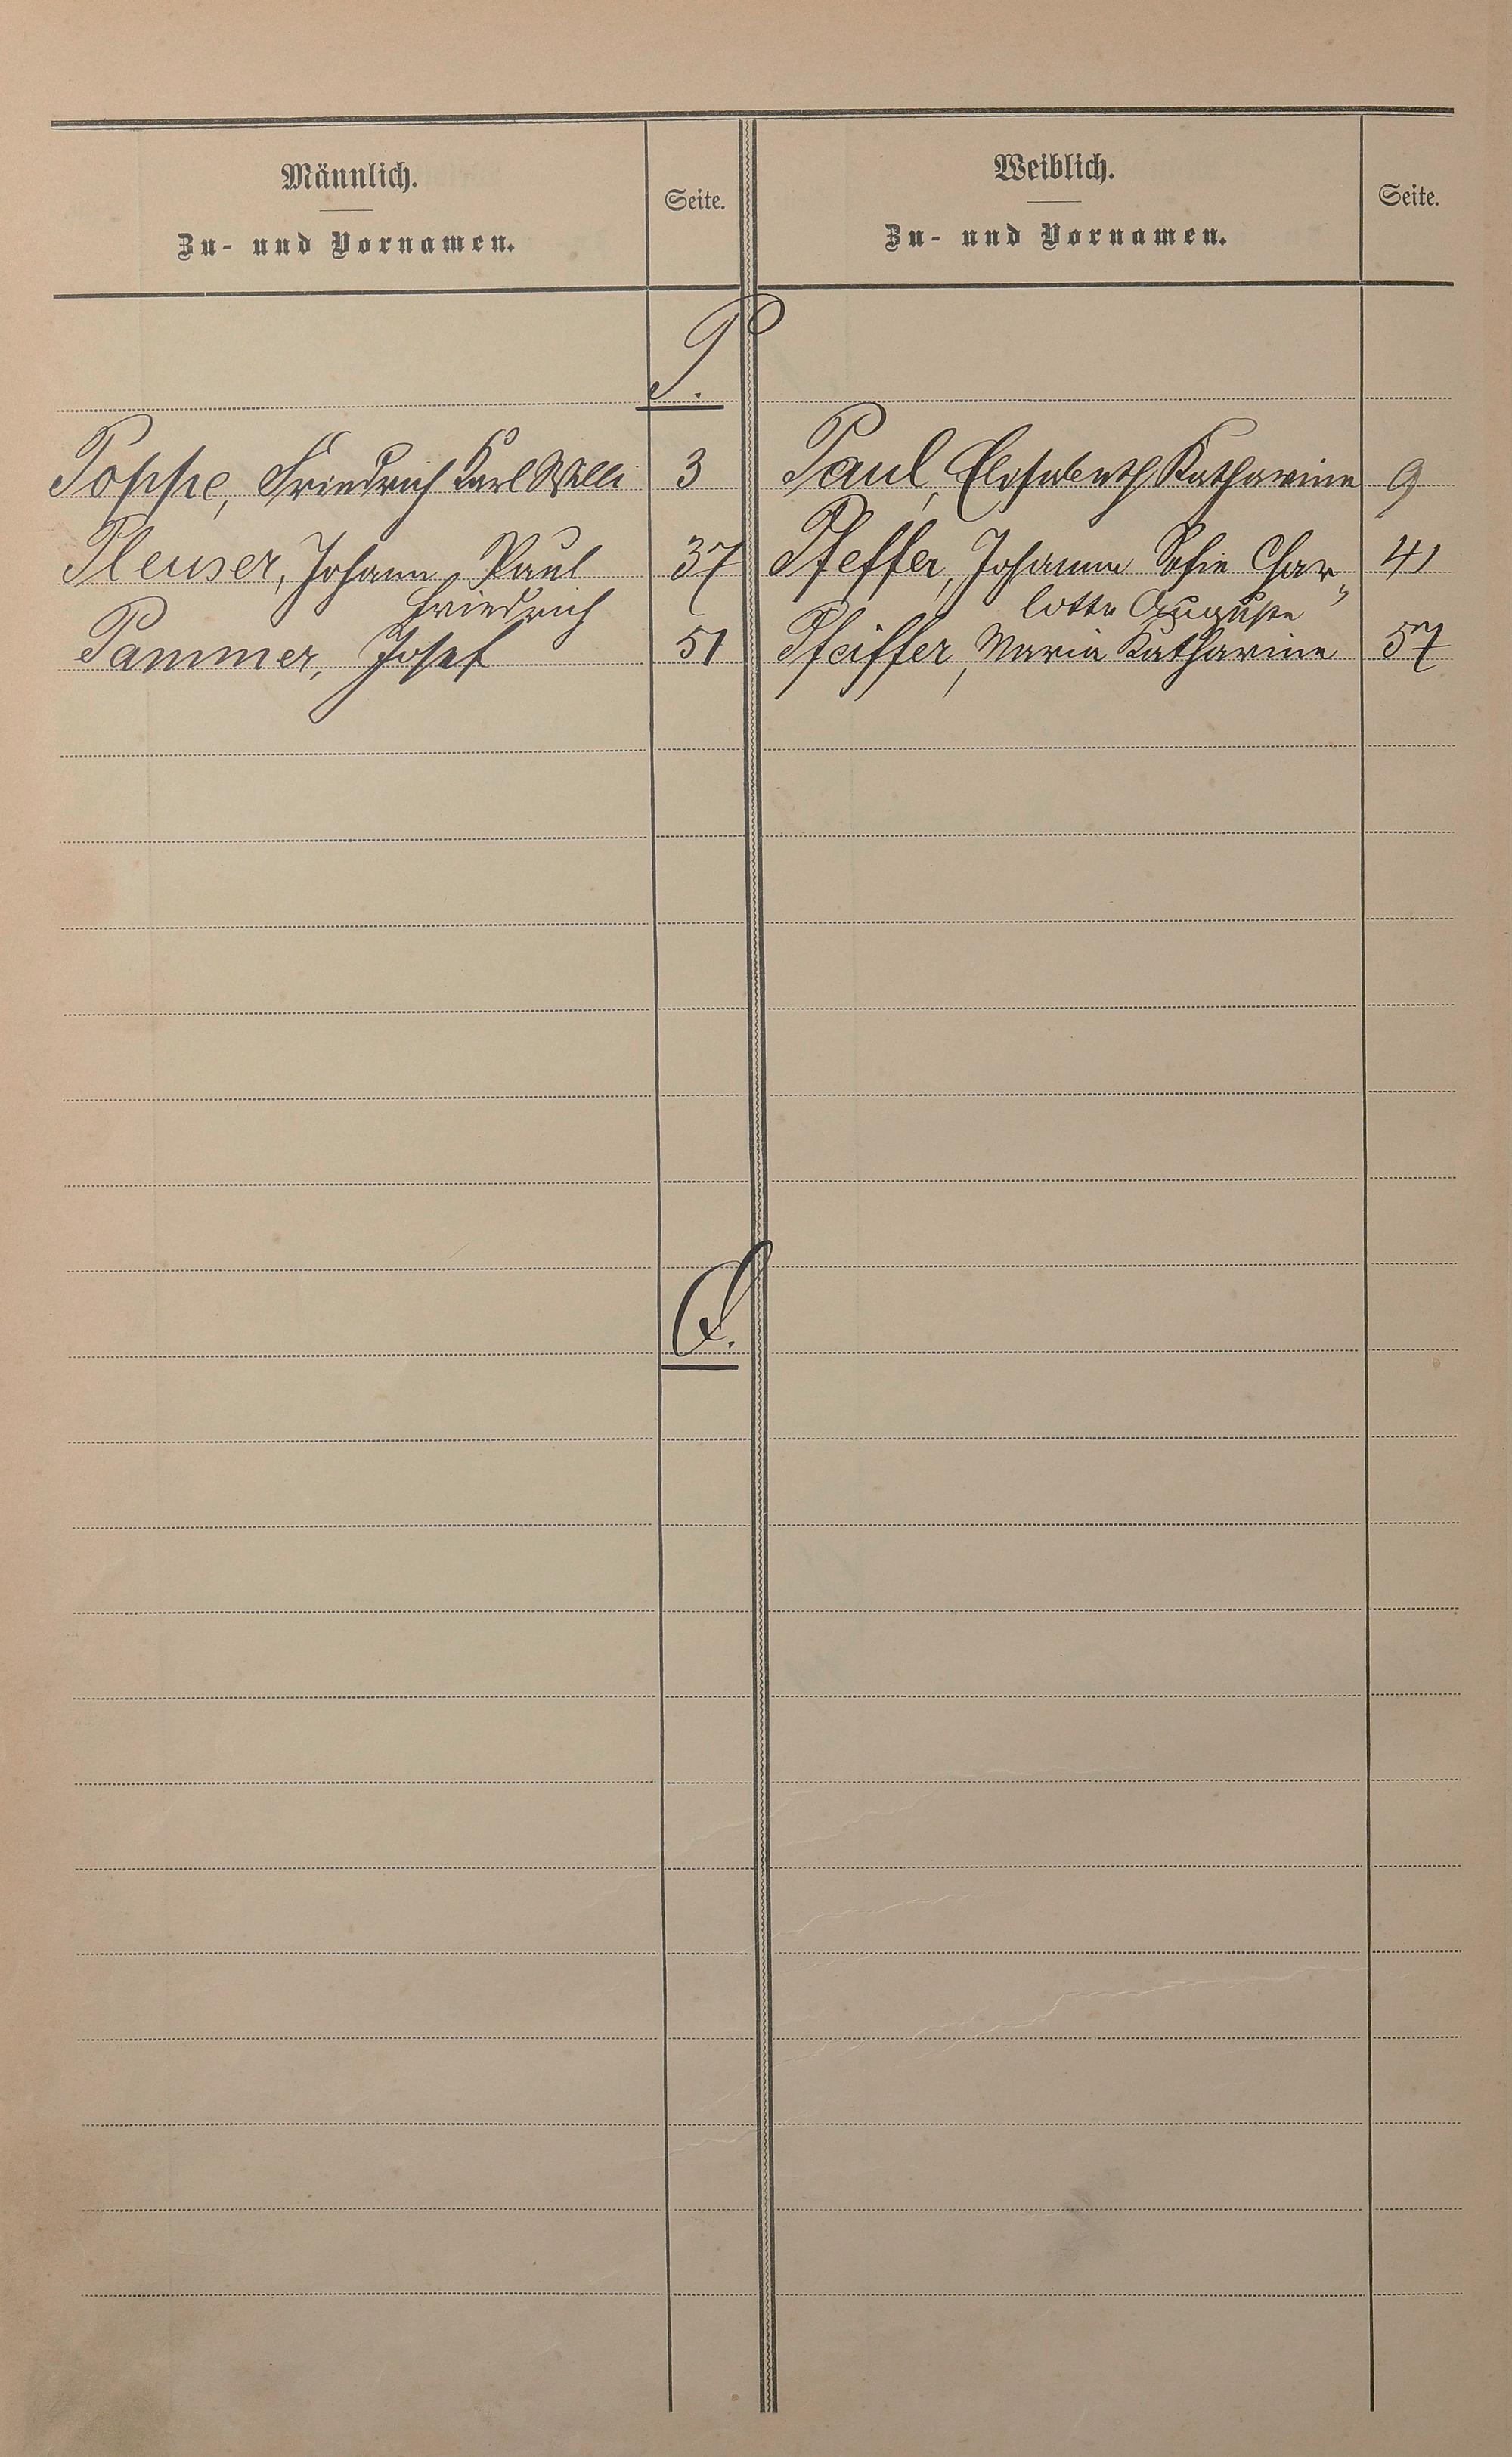 Männlich.
Zu- und Vornamen.
Seite.
Weiblich.
Zu- und Vornamen.
Seite.
P.
Poppe, Friedrich Karl Willi 3 Paul, Elisabeth Katharina 9
Pleuser, Johann Paul 37 Pfeffer, Johanna Sofie Char„ 41
Friedrich lotte Auguste
Pammer, Josef 51 Pfeiffer, Maria Katharina 57
Q.